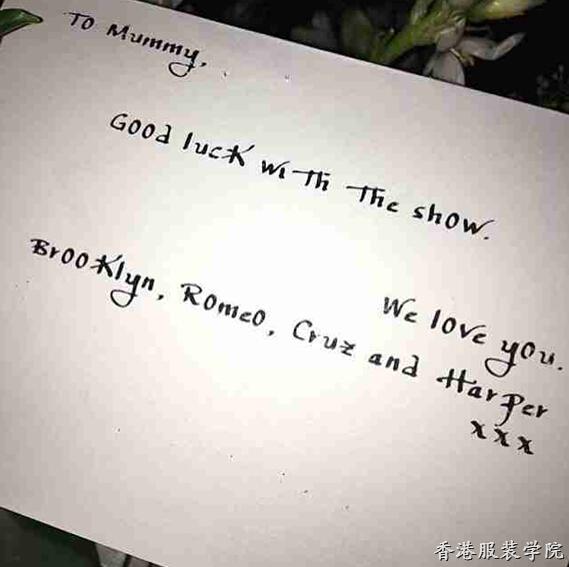 To Mummy,
Good luck with the show.
We love you.
Brooklyn, Romeo, Cruz and Harper
xxx
香港服装学院